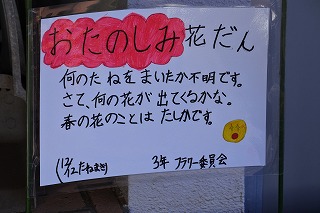 おたのしみ花だん
何のたねをまいたか不明です。
さて、何の花が出てくるかな。
春の花のことはたしかです。
(12/12たねまき) 3年 フラワー委員会